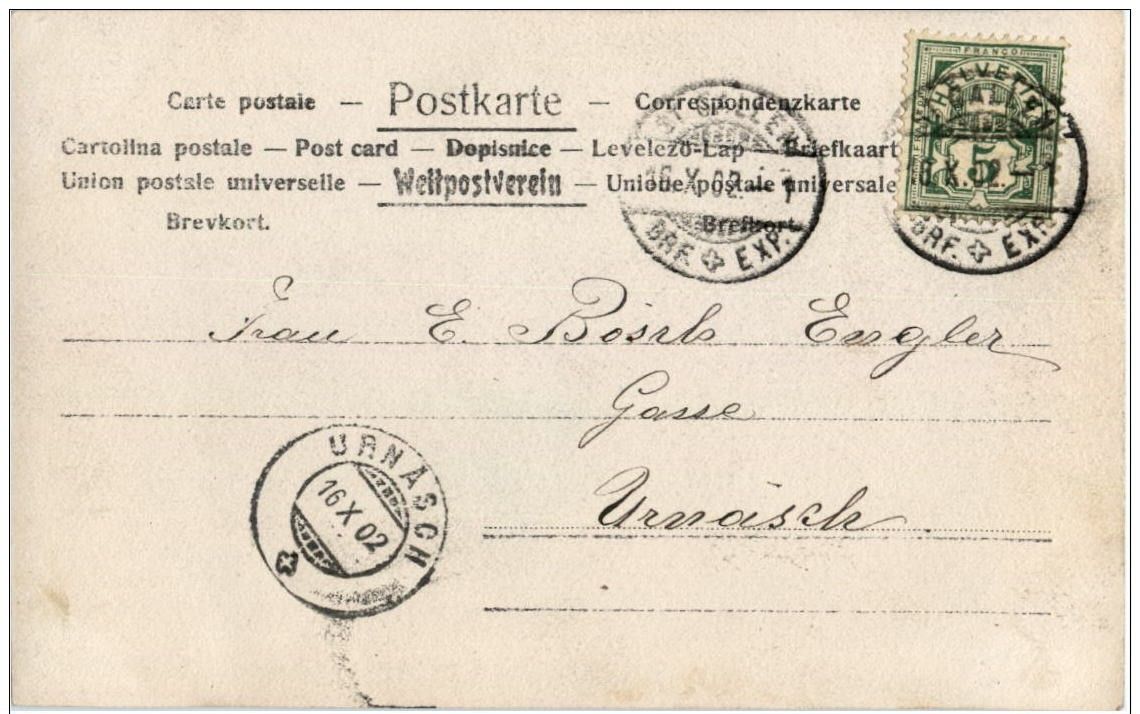 FRANCO
HELVETIA
Carte postale — Postkarte — Correspondenzkarte
Cartolina postale — Post card — Dopisnice — Levelezö-Lap — Briefkaart
Union postale universelle — Weltpostverein — Unione postale universale
Brevkort. Brefkort.
ST. GALLEN
16.X.02.–7
BRF. EXP.
5
6.X.02.–7
BRF. EXP.
Frau E. Bösch Engler
Gasse
Urnäsch
URNÄSCH
16 X 02